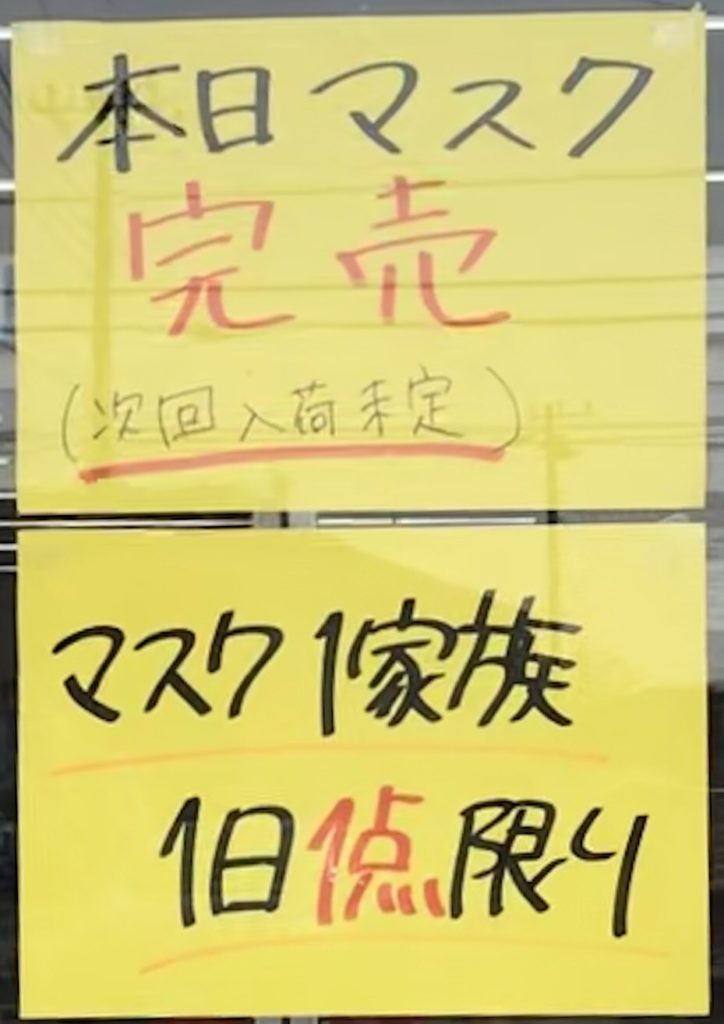 本日マスク
完売
(次回入荷未定)
マスク1家族
1日1点限り